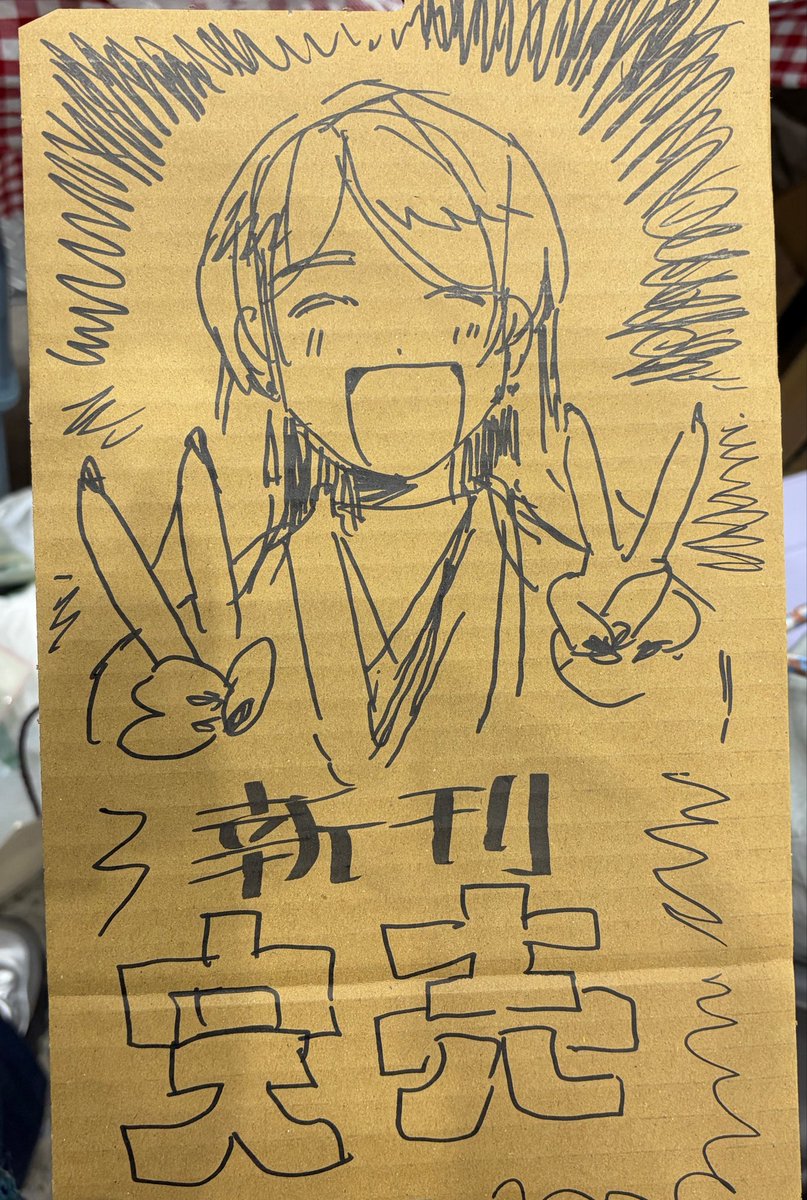 新刊
完売